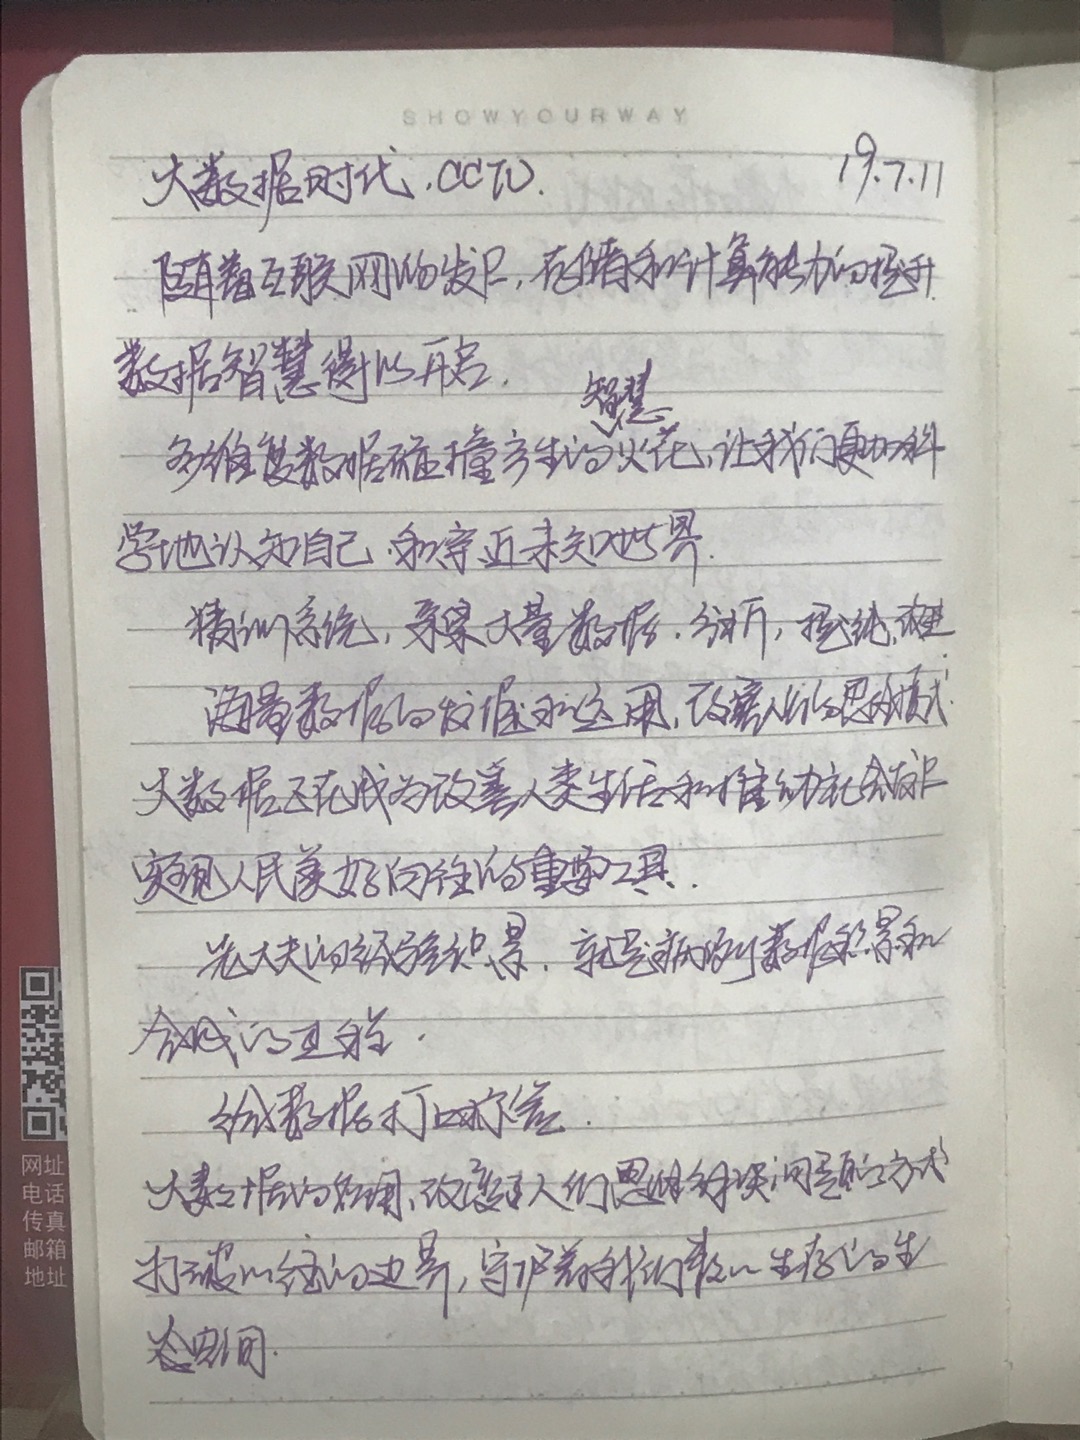 SHOWYOURWAY
大数据时代.CCTV. 19.7.11
随着互联网的发展,存储和计算能力的提升
数据智慧得以开启.
智慧
多维复数据碰撞产生的火花,让我们更加科
学地认知自己.和亲近未知世界.
精训系统,采集大量数据.分析,提纯,
海量数据的发掘和运用,改善人们的思维模式.
大数据正在成为改善人类生活和推动社会发展
实现人民美好向往的重要工具.
老大夫的经验积累.就是病例数据积累和
合成的过程.
给数据打标签.
大数据的应用,改变了人们思维解决问题的方式
打破以往的边界,守护着我们赖以生存的生
态空间.
网址
电话
传真
邮箱
地址